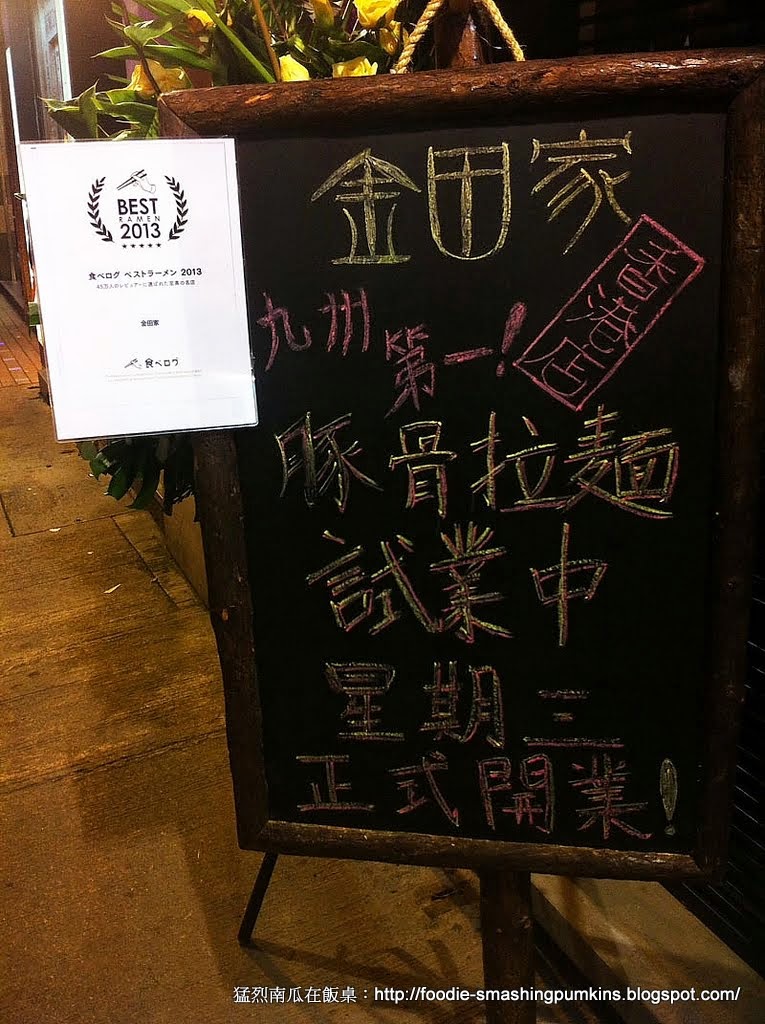 金田家
香港店
九州
第一!
豚骨拉麵
試業中
星期三
正式開業!
BEST
RAMEN
2013
食べログ ベストラーメン 2013
金田家
食べログ
猛烈南瓜在飯桌：http://foodie-smashingpumkins.blogspot.com/